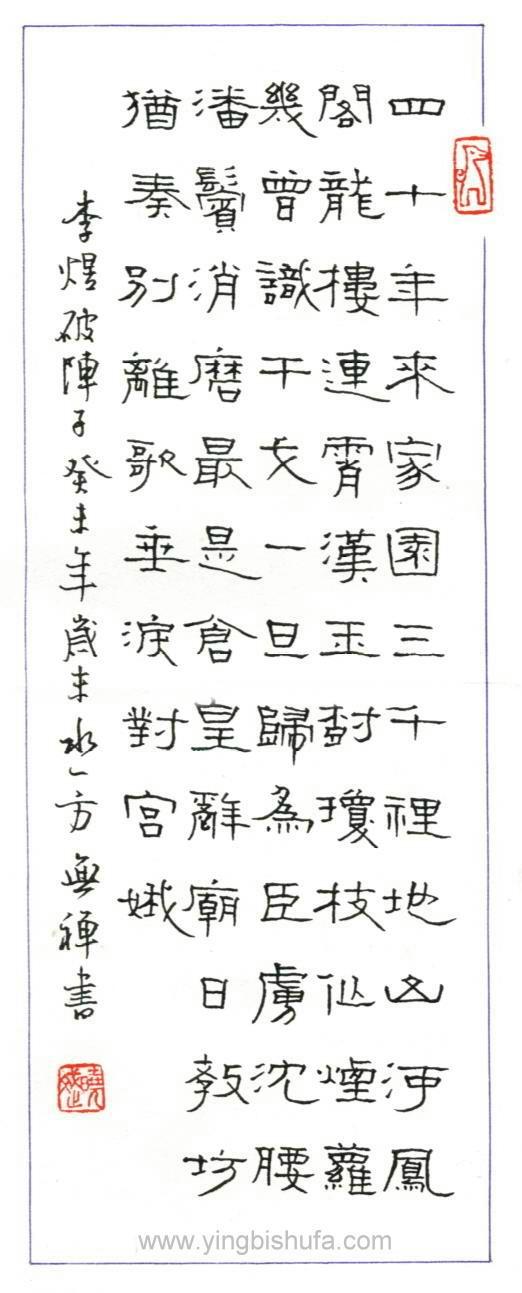 四十年來家園三千裡地山河鳳
閣龍樓連霄漢玉樹瓊枝似煙蘿
幾曾識干戈一旦歸為臣虜沈腰
潘鬢消磨最是倉皇辭廟日教坊
猶奏別離歌垂淚對宮娥
李煜破陣子癸未年歲末水一方無禪書
www.yingbishufa.com